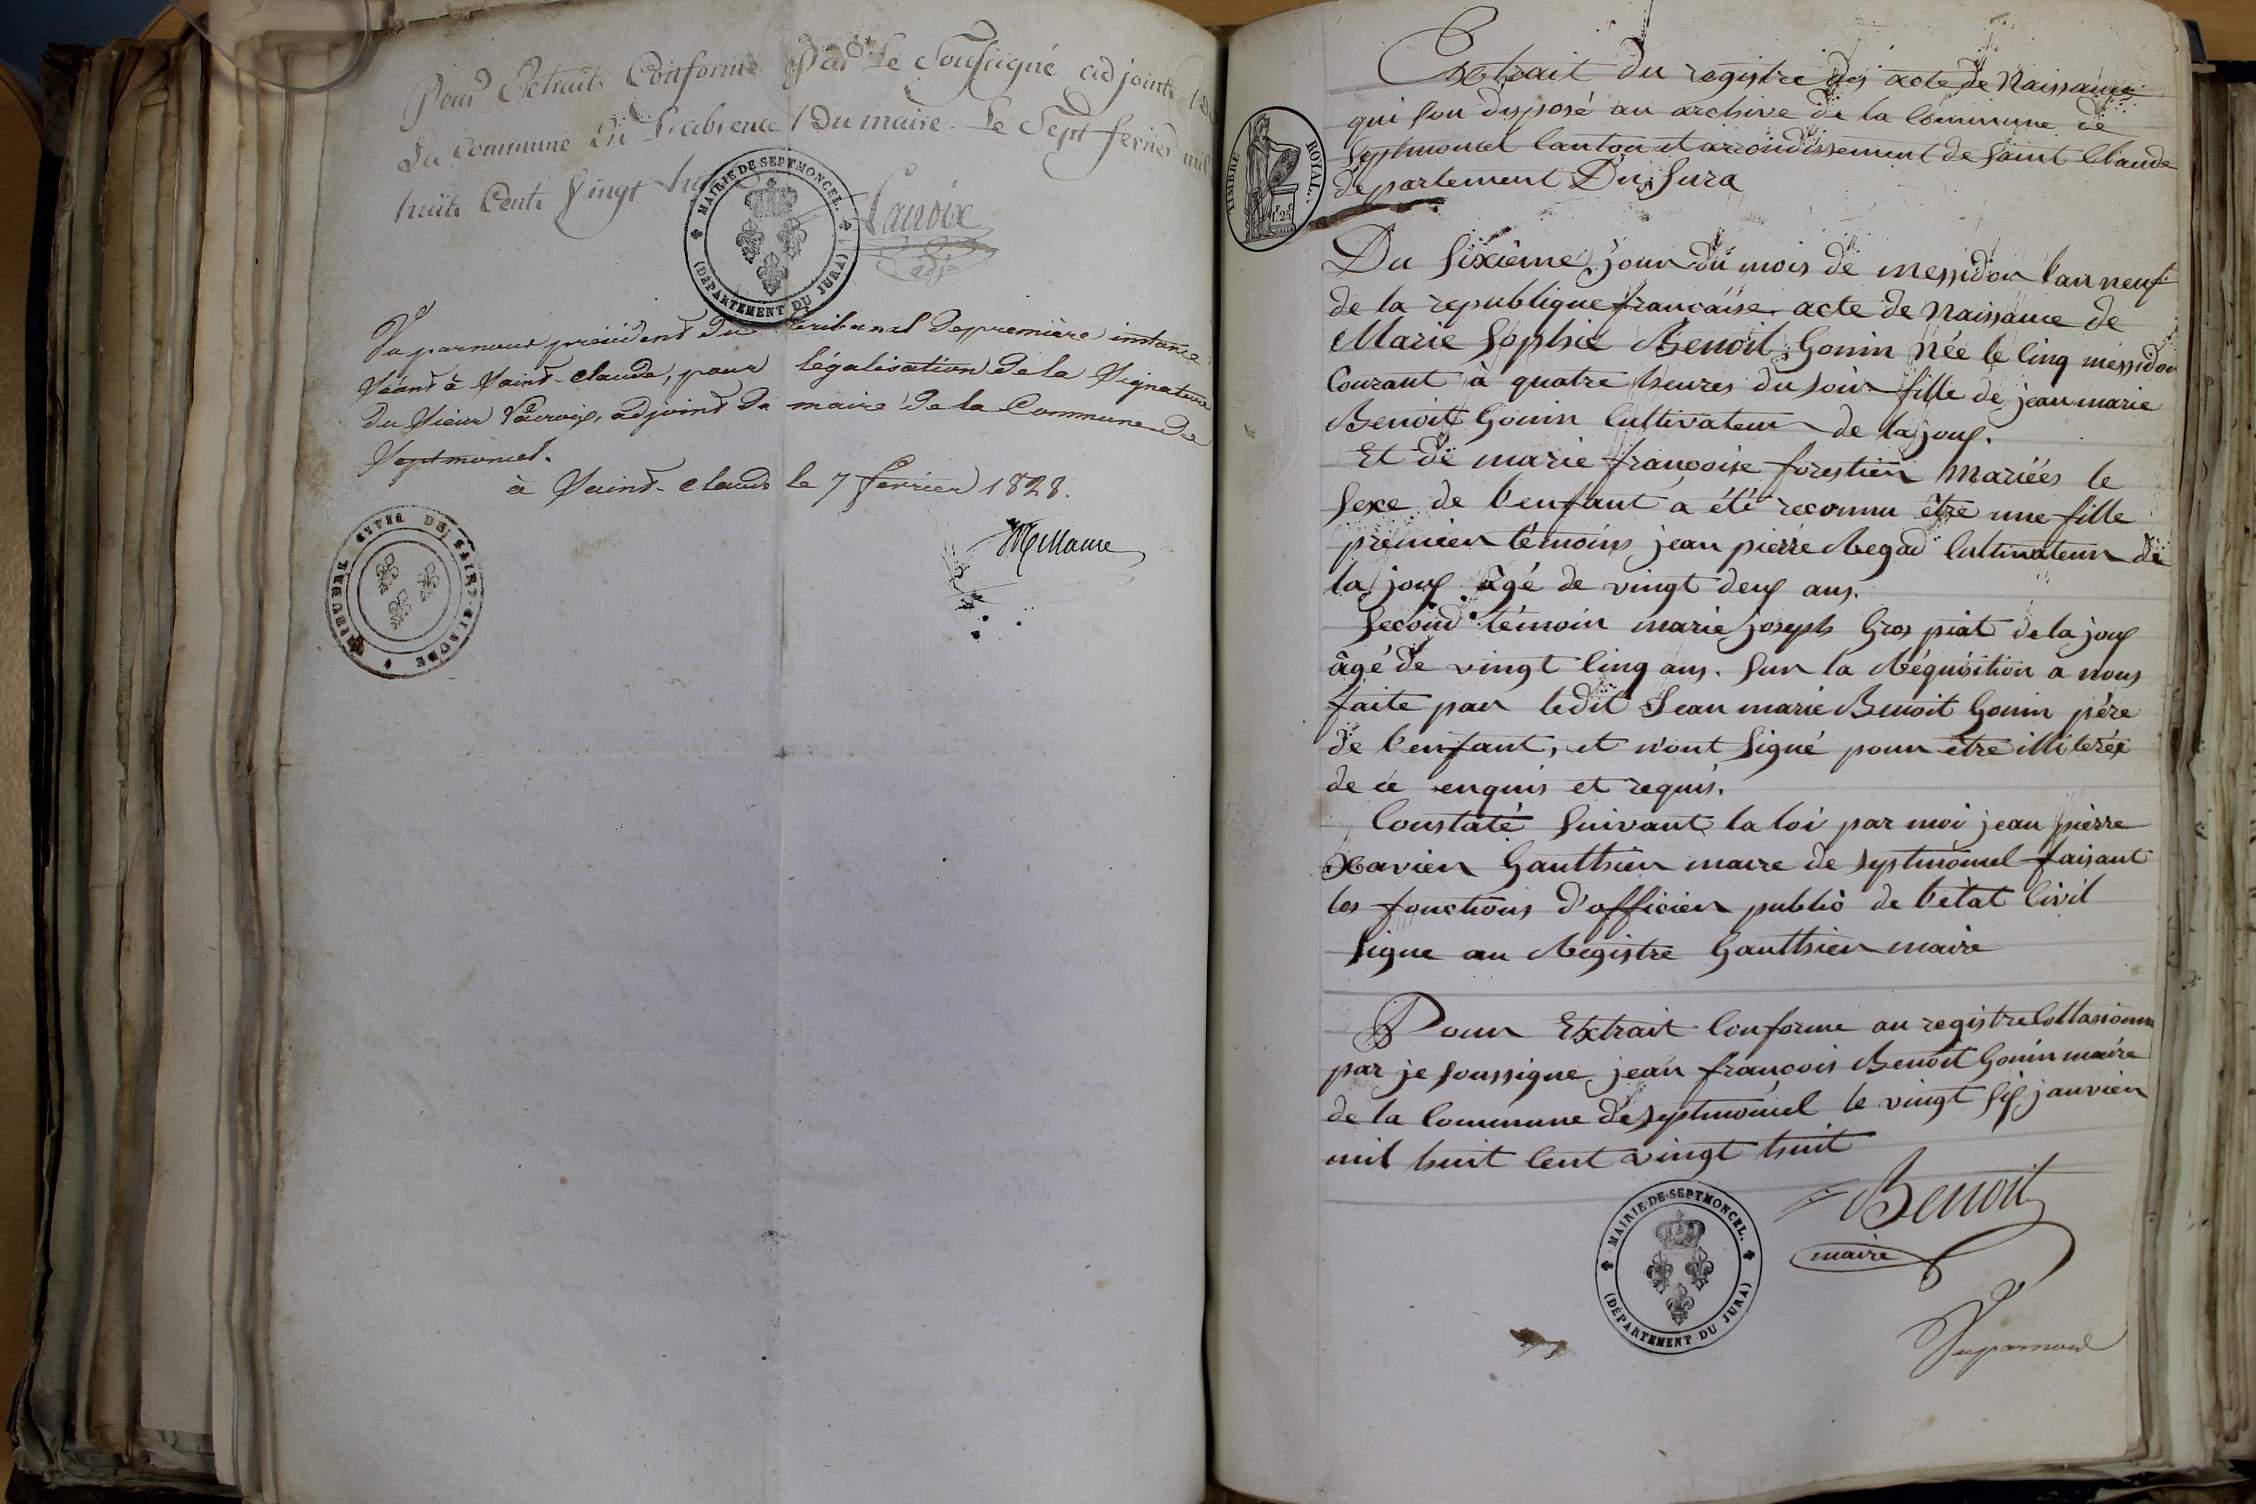 Pour Extrait Conforme Par Le Soussigné adjoint
La commune En L'absence Du maire. Le Sept fevrier mil
huit Cent Vingt huit
Lacroix
adj
MAIRIE DE SEPTMONCEL.
(DÉPARTEMENT DU JURA)
Vu par nous président du tribunal de première instance
Séant à Saint-Claude, pour légalisation de la Signature
du Sieur Lacroix, adjoint du maire de la Commune de
Septmoncel.
à Saint-Claude le 7 février 1828.
TRIBUNAL CIVIL DE SAINT-CLAUDE
TIMBRE ROYAL.
Extrait du registre des acte de Naissance
qui son disposé au archive de la Commune de
Septmoncel Canton et arrondissement de Saint Claude
département Du Jura
Du Sixième jour du mois de messidor l'an neuf
de la republique française acte de Naissance de
Marie Sophie Benoit Gonin Née le Cinq messidor
Courant à quatre heures du soir fille de jean marie
Benoit Gonin Cultivateur de la joux.
Et de marie françoise forestier Mariées le
Sexe de l'enfant a été reconnu être une fille
premier témoins jean pierre Regad Cultivateur de
la joux âgé de vingt deux ans.
Second témoin marie joseph Gros piat de la joux
âgé de vingt Cinq ans. Sur la Réquisition a nous
faite par ledit Jean marie Benoit Gonin père
de l'enfant, et n'ont Signé pour être illiterés
de ce enquis et requis.
Constaté Suivant la loi par moi jean pierre
Xavier Gauthier maire de septmoncel faisant
les fonctions d'officier public de l'état Civil
Signe au Registre Gauthier maire
Pour Extrait Conforme au registre Collasionné
par je Soussigne jean françois Benoit Gonin maire
de la Commune de septmoncel le vingt Six janvier
mil huit Cent vingt huit
Benoit
maire
MAIRIE DE SEPTMONCEL.
(DÉPARTEMENT DU JURA)
Vu par nous